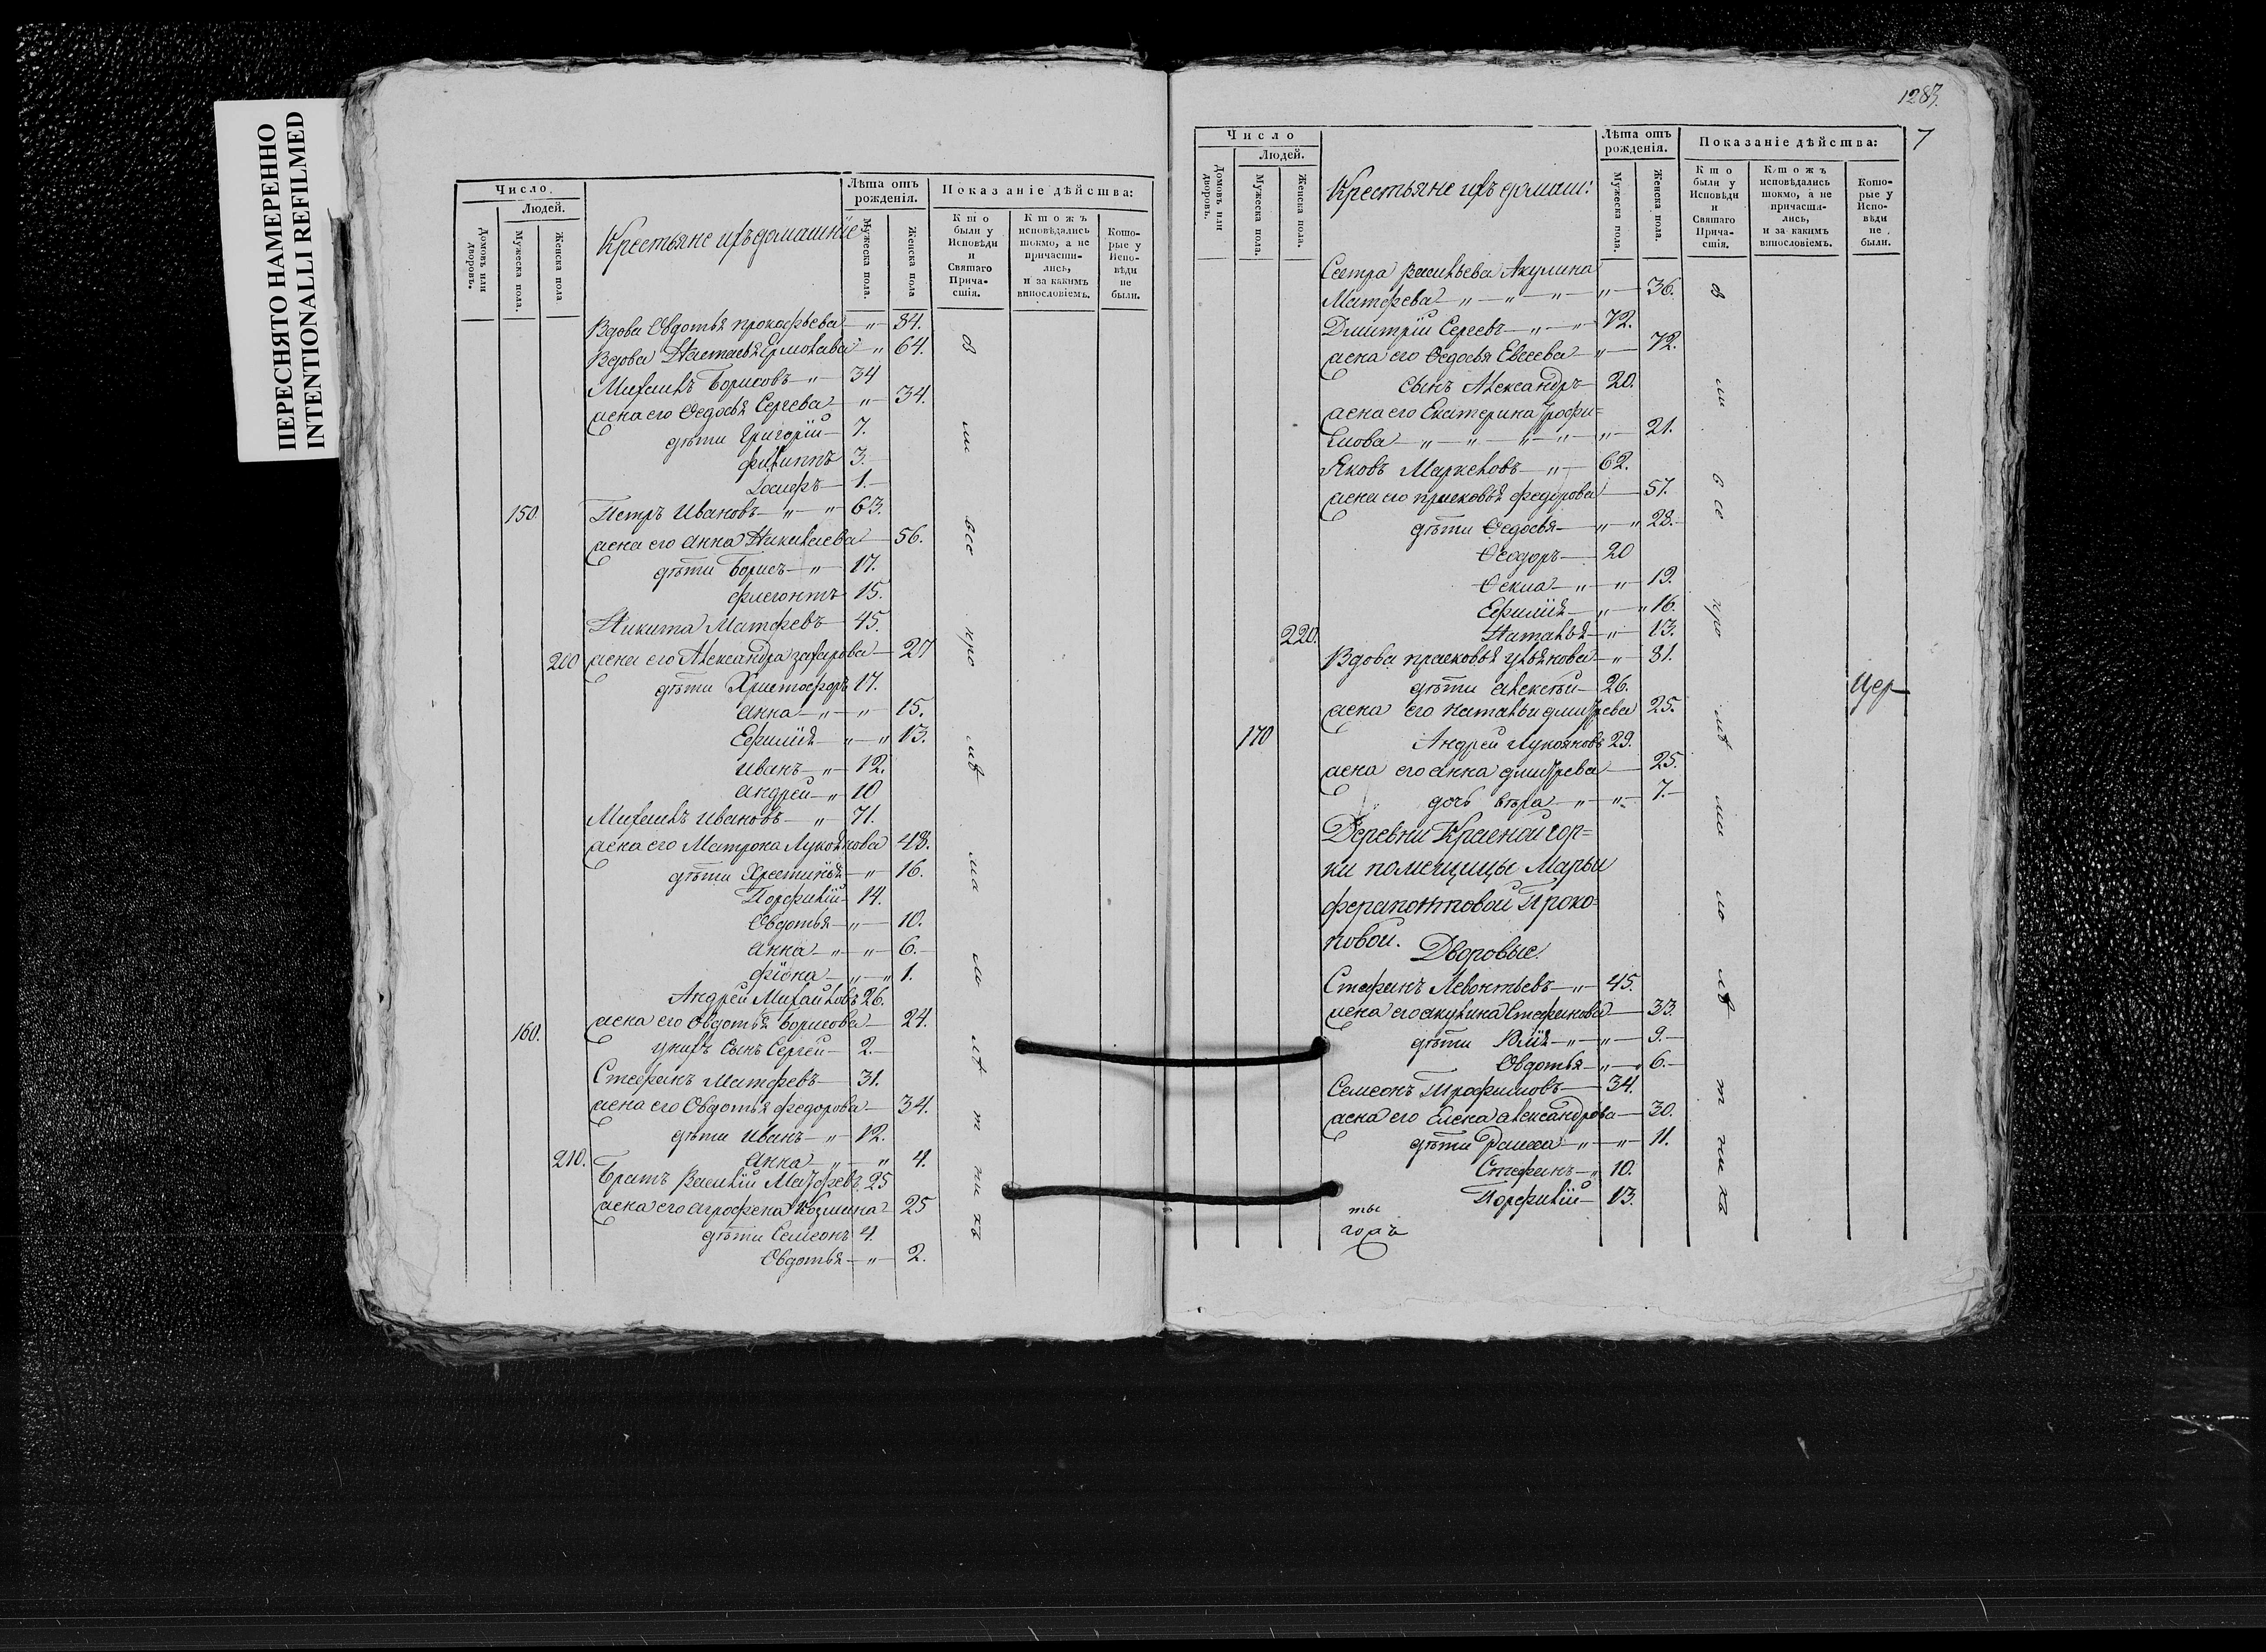 ПЕРЕСНЯТО НАМЕРЕННО
INTENTIONALLI REFILMED
Число.
Людей.
Домовъ или дворовъ.
Мужеска пола.
Женска пола
Крестьяне ихъ домашнїе
Лѣта отъ рожденія.
Мужеска пола.
Женска пола
Показаніе дѣйства:
Кто были у Исповѣди и Святаго Причастія.
Ктожъ исповѣдались токмо, а не причастились, и за какимъ винословіемъ.
Которые у Исповѣди не были.
Вдова Овдотья прокофьева — „ — 84.
Вдова Настасья Ермолаева — „ 64.
Михаилъ Борисовъ — „ — 34
жена его Ѳедосья Сергева — „ — 34.
дѣти Григорїй — 7.
филиппъ 3.
Іосифъ — 1.
150 Петръ Ивановъ — „ — „ 63.
жена его Анна Николаева — 56.
дѣти Борисъ — „ — 17.
флегонтъ 15.
Никита Матфевъ — 45.
200 жена его Александра захарова — 27
дѣти Христофоръ 17.
Анна — „ — „ — 15.
Ефимїя — „ — „ 13.
Иванъ — „ — 12.
Андрей — „ 10
Михаилъ Ивановъ — „ — 71.
жена его Матрона Лукоянова 48.
дѣти Хрестинья — „ — 16.
Порфилїй — 14.
Овдотья — „ — 10.
Анна — „ — „ — 6.
фїона — „ — „ 1.
Андрей Михайловъ 26.
жена его Овдотья Борисова — 24.
160. унихъ сынъ Сергей — 2.
Стефанъ Матфевъ — 31.
жена его Овдотья федорова — 34.
дѣти Иванъ — „ — 12.
210. Анна — „ — „ 4.
Братъ Василїй Матфевъ 25
жена его агрофена Козмина 25
дѣти Семеонъ 4.
Овдотья — „ — 2.
1283.
7
Число
Людей.
Домовъ или дворовъ.
Мужеска пола.
Женска пола.
Крестьяне ихъ домаш:
Лѣта отъ рожденія.
Мужеска пола.
Женска пола.
Показаніе дѣйства:
Кто были у Исповѣди и Святаго Причастія.
Ктожъ исповѣдались токмо, а не причастились, и за какимъ винословіемъ.
Которые у Исповѣди не были.
Сестра Васильева Акулина
Матфева — „ — „ — „ — „ — 36.
Дмитрїй Сергевъ — „ — „ 72.
жена его Ѳедосья Евсеева — „ — 72.
сынъ Александръ — 20.
жена его Екатерина Трофи=
мова — „ — „ — „ — „ — „ — 21.
Яковъ Маркеловъ — „ — 62.
жена его прасковья федорова — 57.
дѣти Ѳедосья — „ — „ 28.
Ѳеодоръ — 20
Ѳекла — „ — „ — 19.
Ефимїя — „ — „ 16.
220. Наталья — „ — 13.
Вдова прасковья ульянова — „ — 81.
дѣти алексѣй — 26.
жена его наталья дмитрева 25.
170 Андрей Лукояновъ 29.
жена его анна дмитрева — 25.
дочь вѣра — „ — „ — 7.
цер
Деревни Красной гор=
ки помещицы Марьи
ферапонтовой Проко=
повой.
Дворовые.
Стефанъ Левонтьевъ — „ — 45.
жена его акулина Стефанова — 33.
дѣти Юлїя — „ — „ — 9.
Овдотья — „ — „ 6.
Семеонъ Трофимовъ — 34.
жена его Елена александрова — 30.
дѣти Раиса — „ — „ — 11.
Стефанъ — „ 10.
Порфилїй — 13.